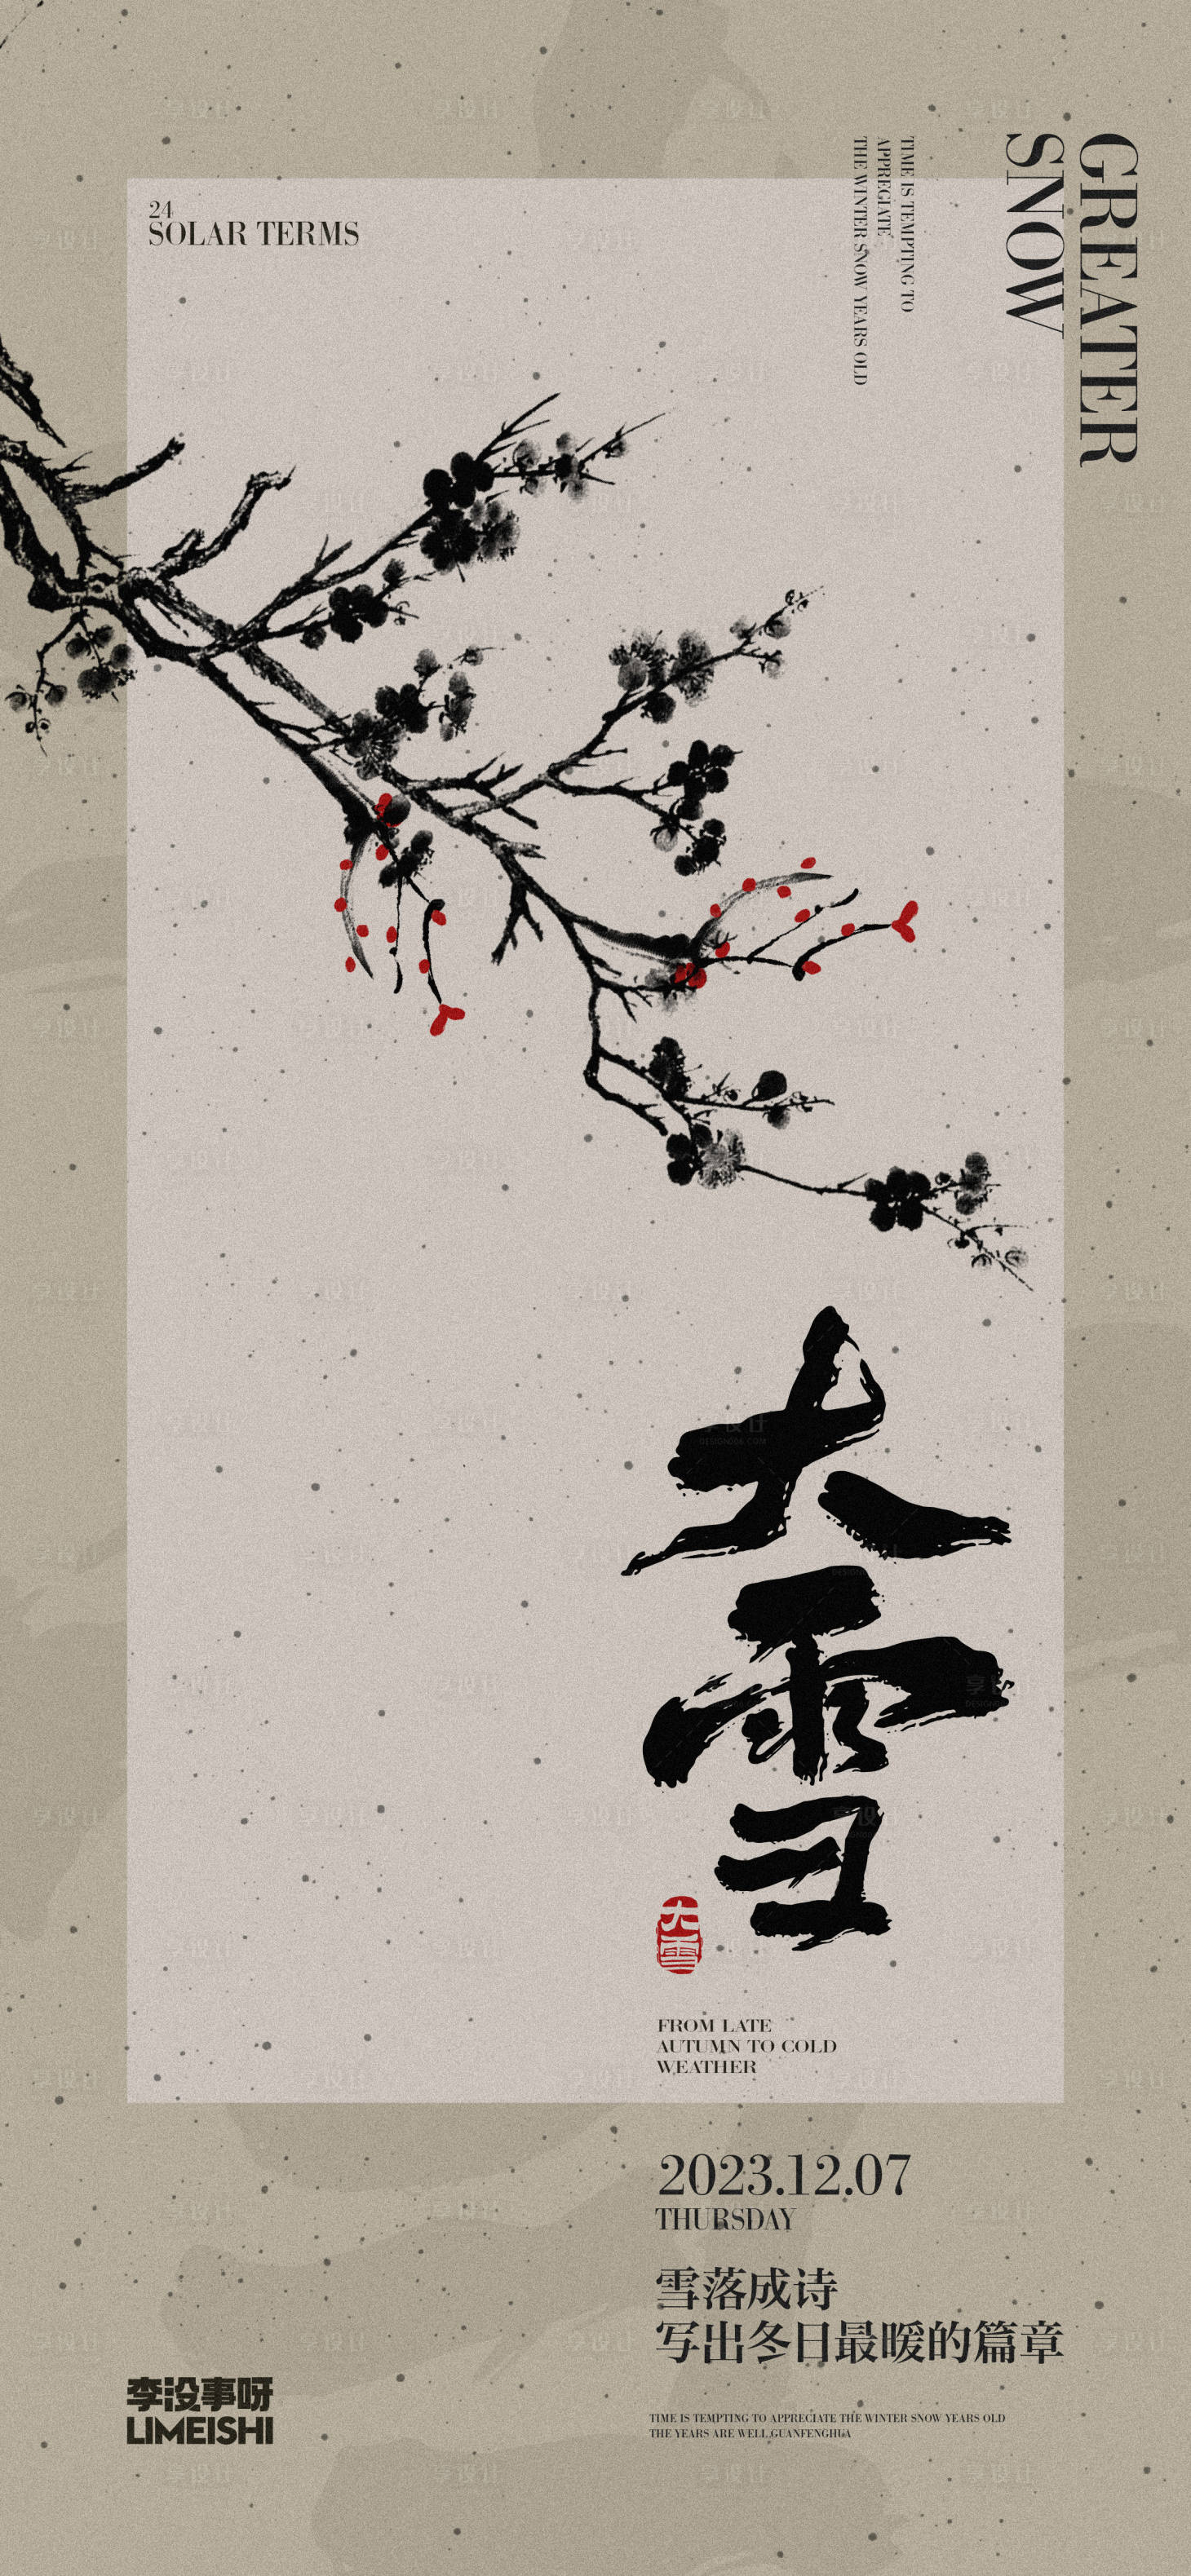 GREATER
SNOW
TIME IS TEMPTING TO
APPREGIATE
THE WINTER SNOW YEARS OLD
24
SOLAR TERMS
大雪
大雪
FROM LATE
AUTUMN TO COLD
WEATHER
2023.12.07
THURSDAY
雪落成诗
写出冬日最暖的篇章
李没事呀
LIMEISHI
TIME IS TEMPTING TO APPRECIATE THE WINTER SNOW YEARS OLD
THE YEARS ARE WELL,GUANFENGHUA
享设计